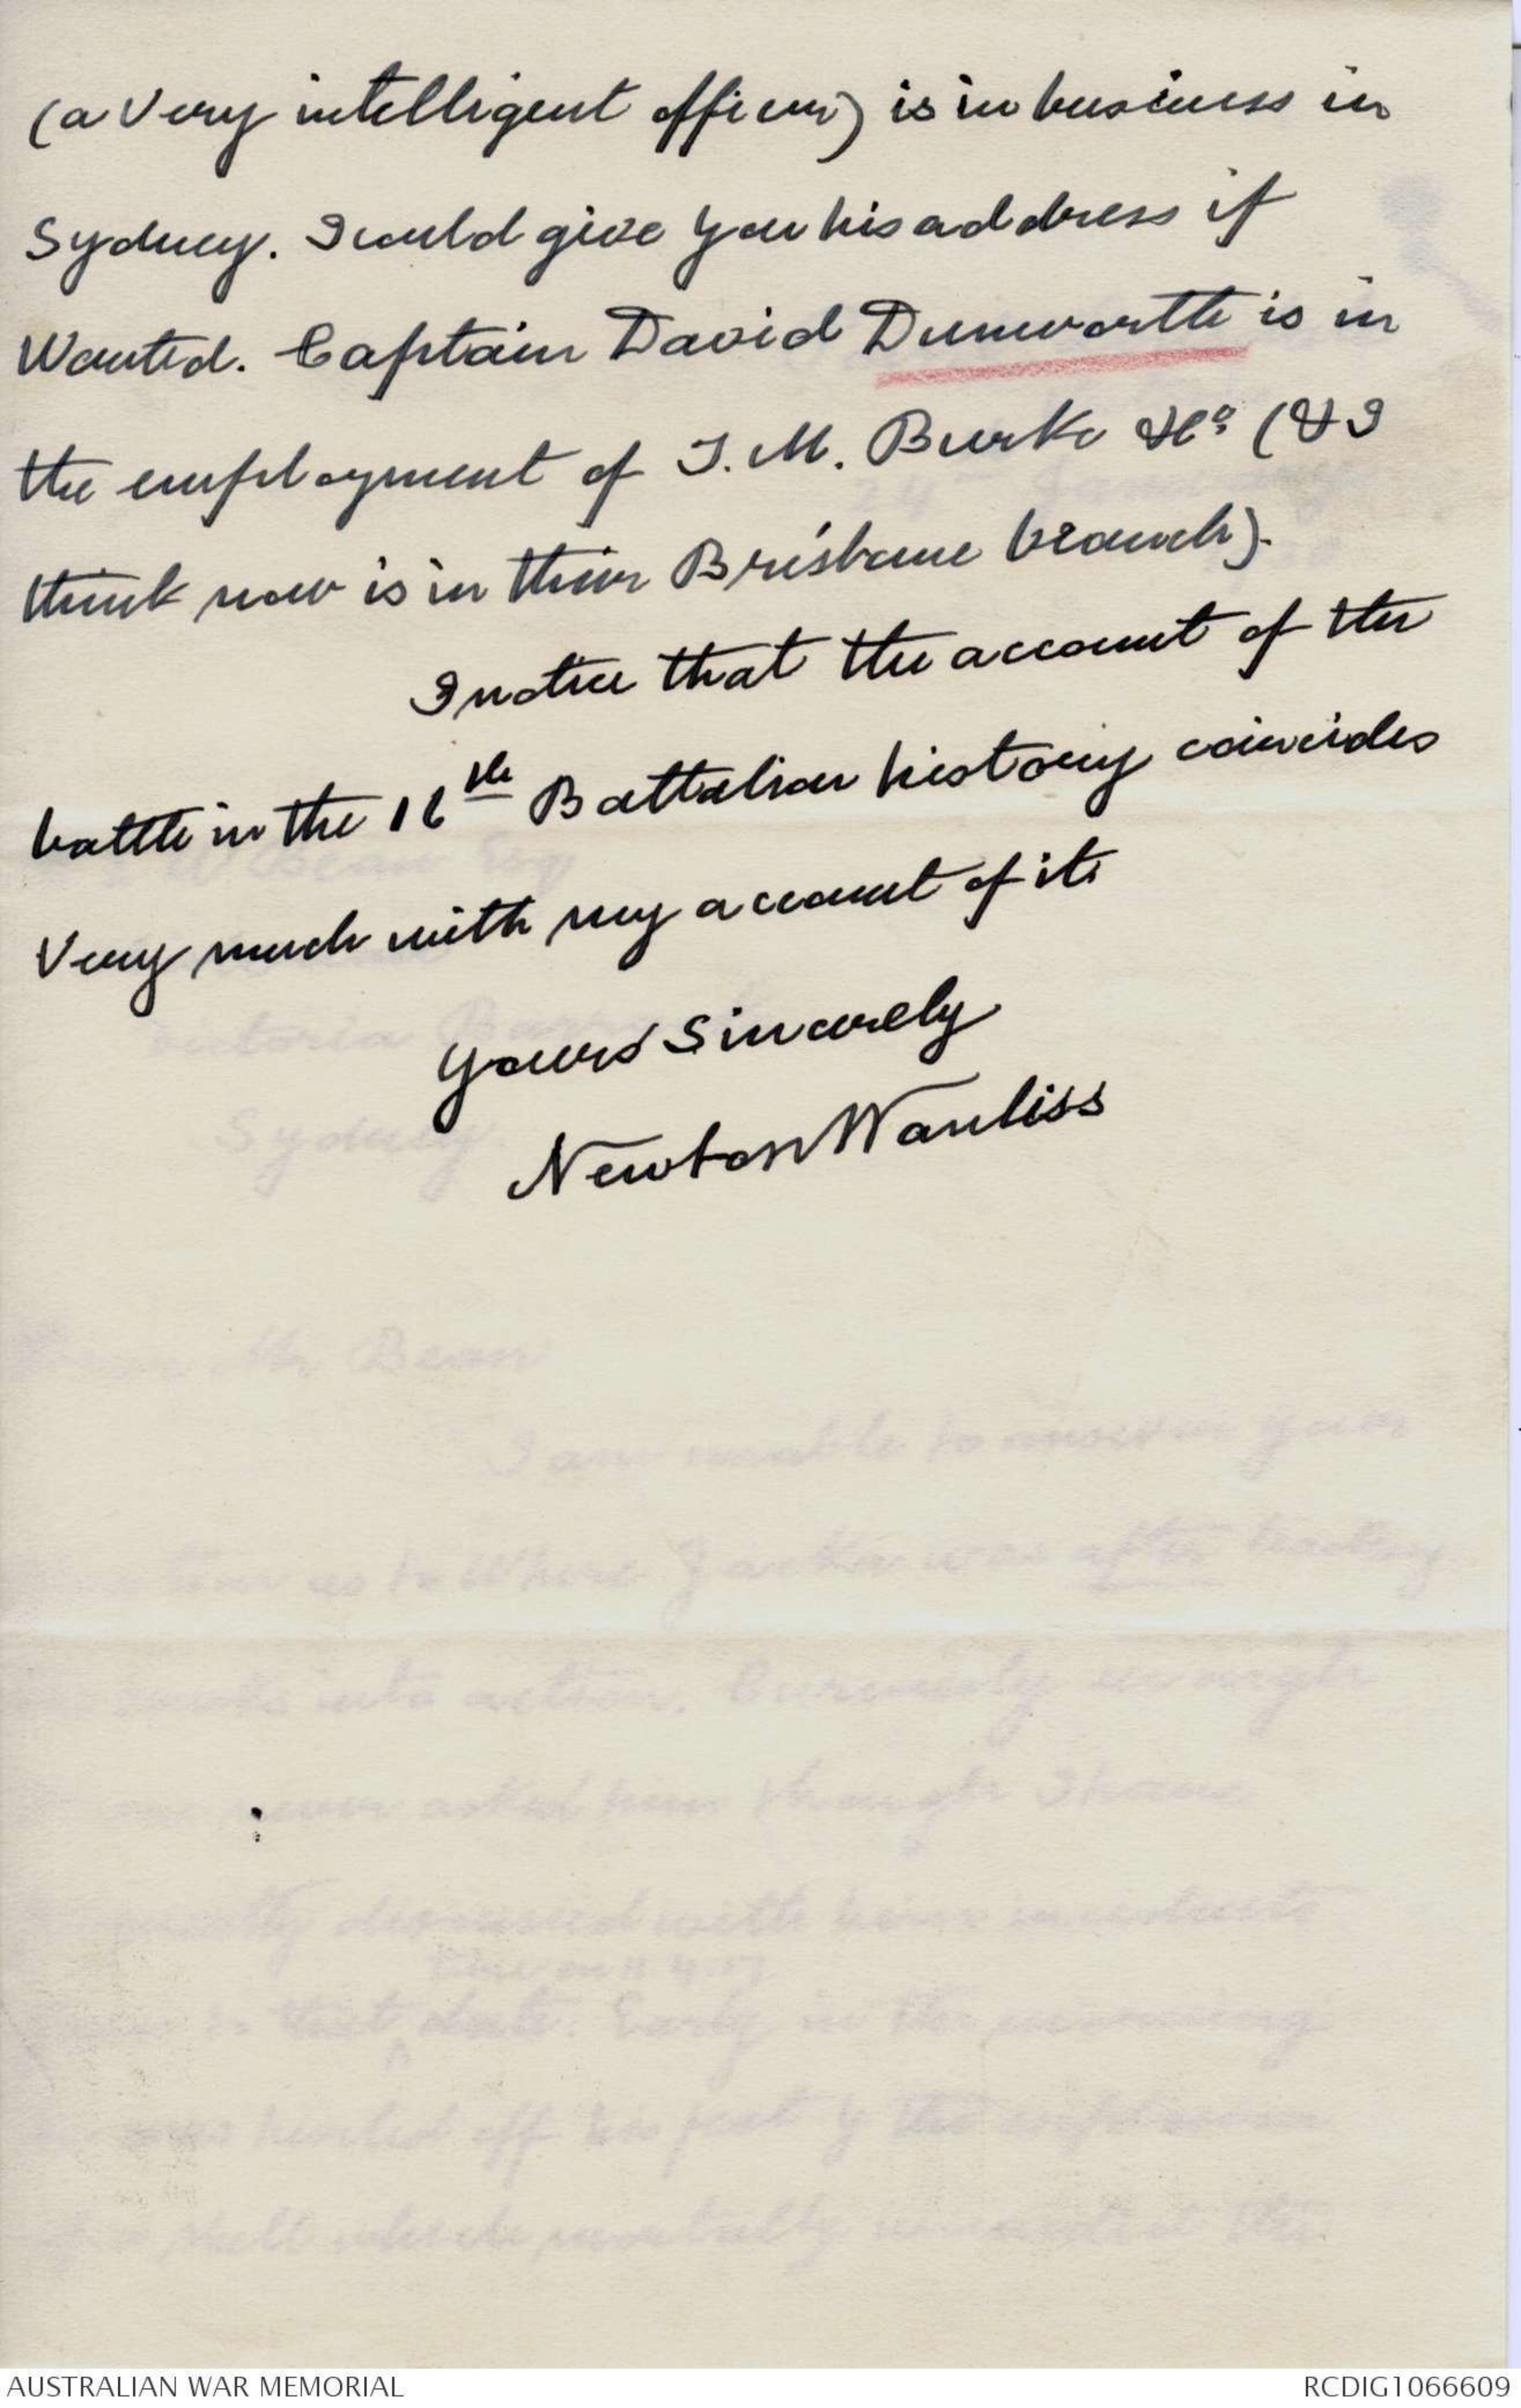 (a Very intelligent officer) is in business in
Sydney. I could give you his address if
Wanted. Captain David Dunworth is in
the employment of T. M. Burke & Co (& I
think now is in their Brisbane branch).
I notice that the account of the
battle in the 16th Battalion history coincides
Very much with my account of it.
Yours Sincerely
Newton Wanliss
AUSTRALIAN WAR MEMORIAL
RCDIG1066609